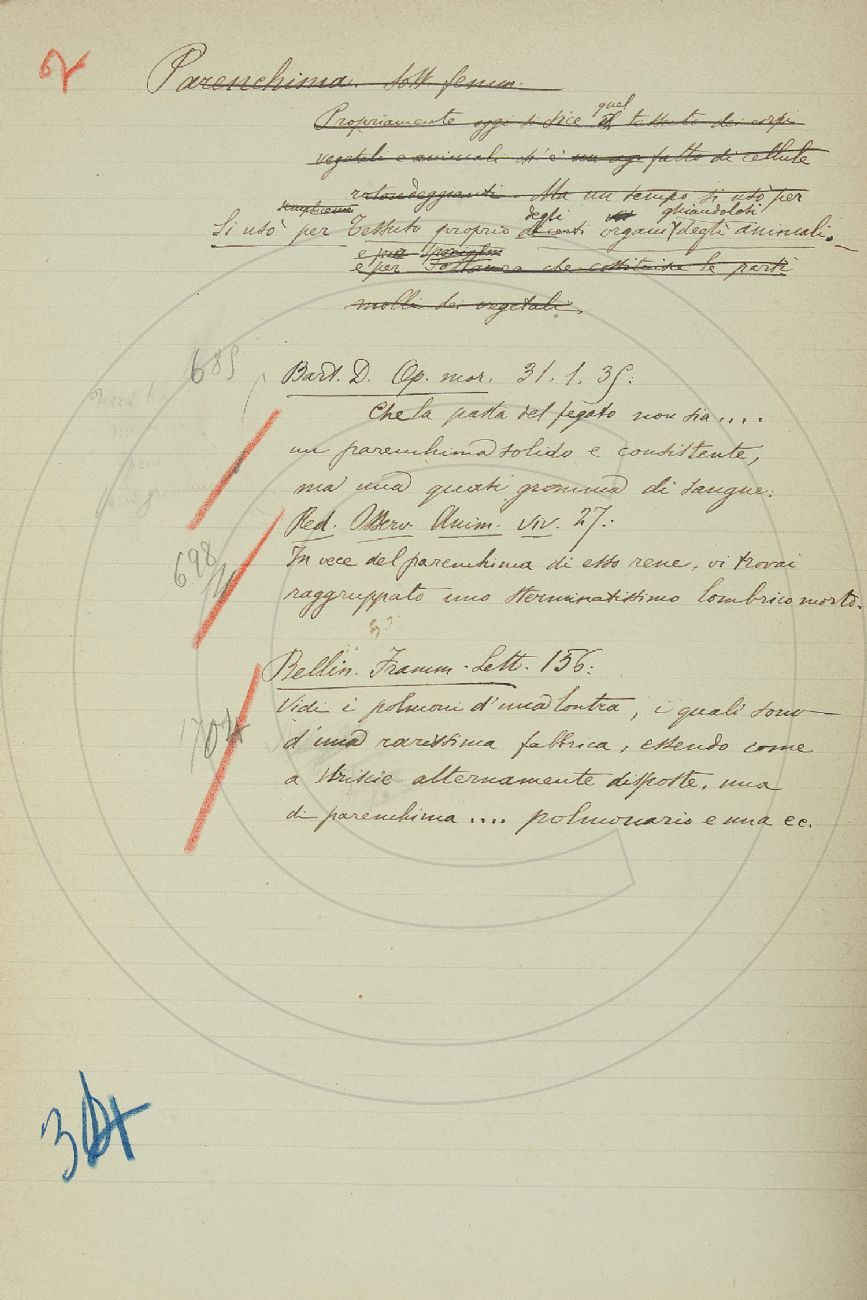 Parenchima. Sost. femm.
Propriamente oggi si dice quel tessuto dei corpi
vegetali e animali ch'è fatto di cellule
rotondeggianti. Ma un tempo si usò per
Si usò per Tessuto proprio degli organi ghiandolosi degli animali. —
e per Sostanza che costituisce le parti
molli dei vegetali.
685
Bart. D. Op. mor. 31. 1. 35:
Che la pasta del fegato non sia....
un parenchima solido e consistente,
ma una quasi gromma di sangue:
Red. Osserv. Anim. viv. 27.:
698
In vece del parenchima di esso rene, vi trovai
raggruppato uno sterminatissimo lombrico morto.
5?
Bellin. Framm. Lett. 156:
1704
Vidi i polmoni d'una lontra, i quali sono
d'una rarissima fabbrica, essendo come
a strisce alternamente disposte, una
di parenchima .... polmonario e una ec.